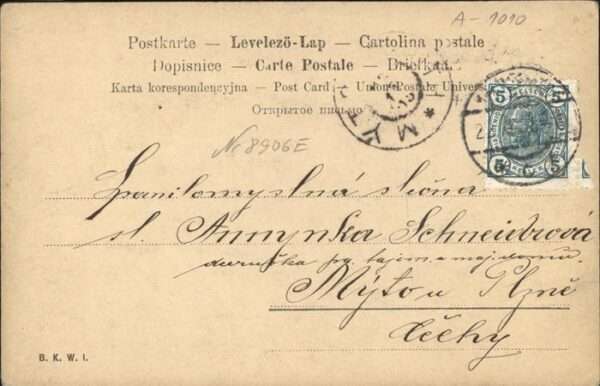 A-1010
Postkarte — Levelezö-Lap — Cartolina postale
Dopisnice — Carte Postale — Briefkaart
Karta korespondencyjna — Post Card — Union Postale Univers
Открытое письмо
MÝT
5 5
5 5
Nr 8906E
Spanilomyslná slečna
sl. Annynka Schneidrová
dceruška pp. tajem. a maj. domu
Mýto u Plzně
Čechy
B. K. W. I.